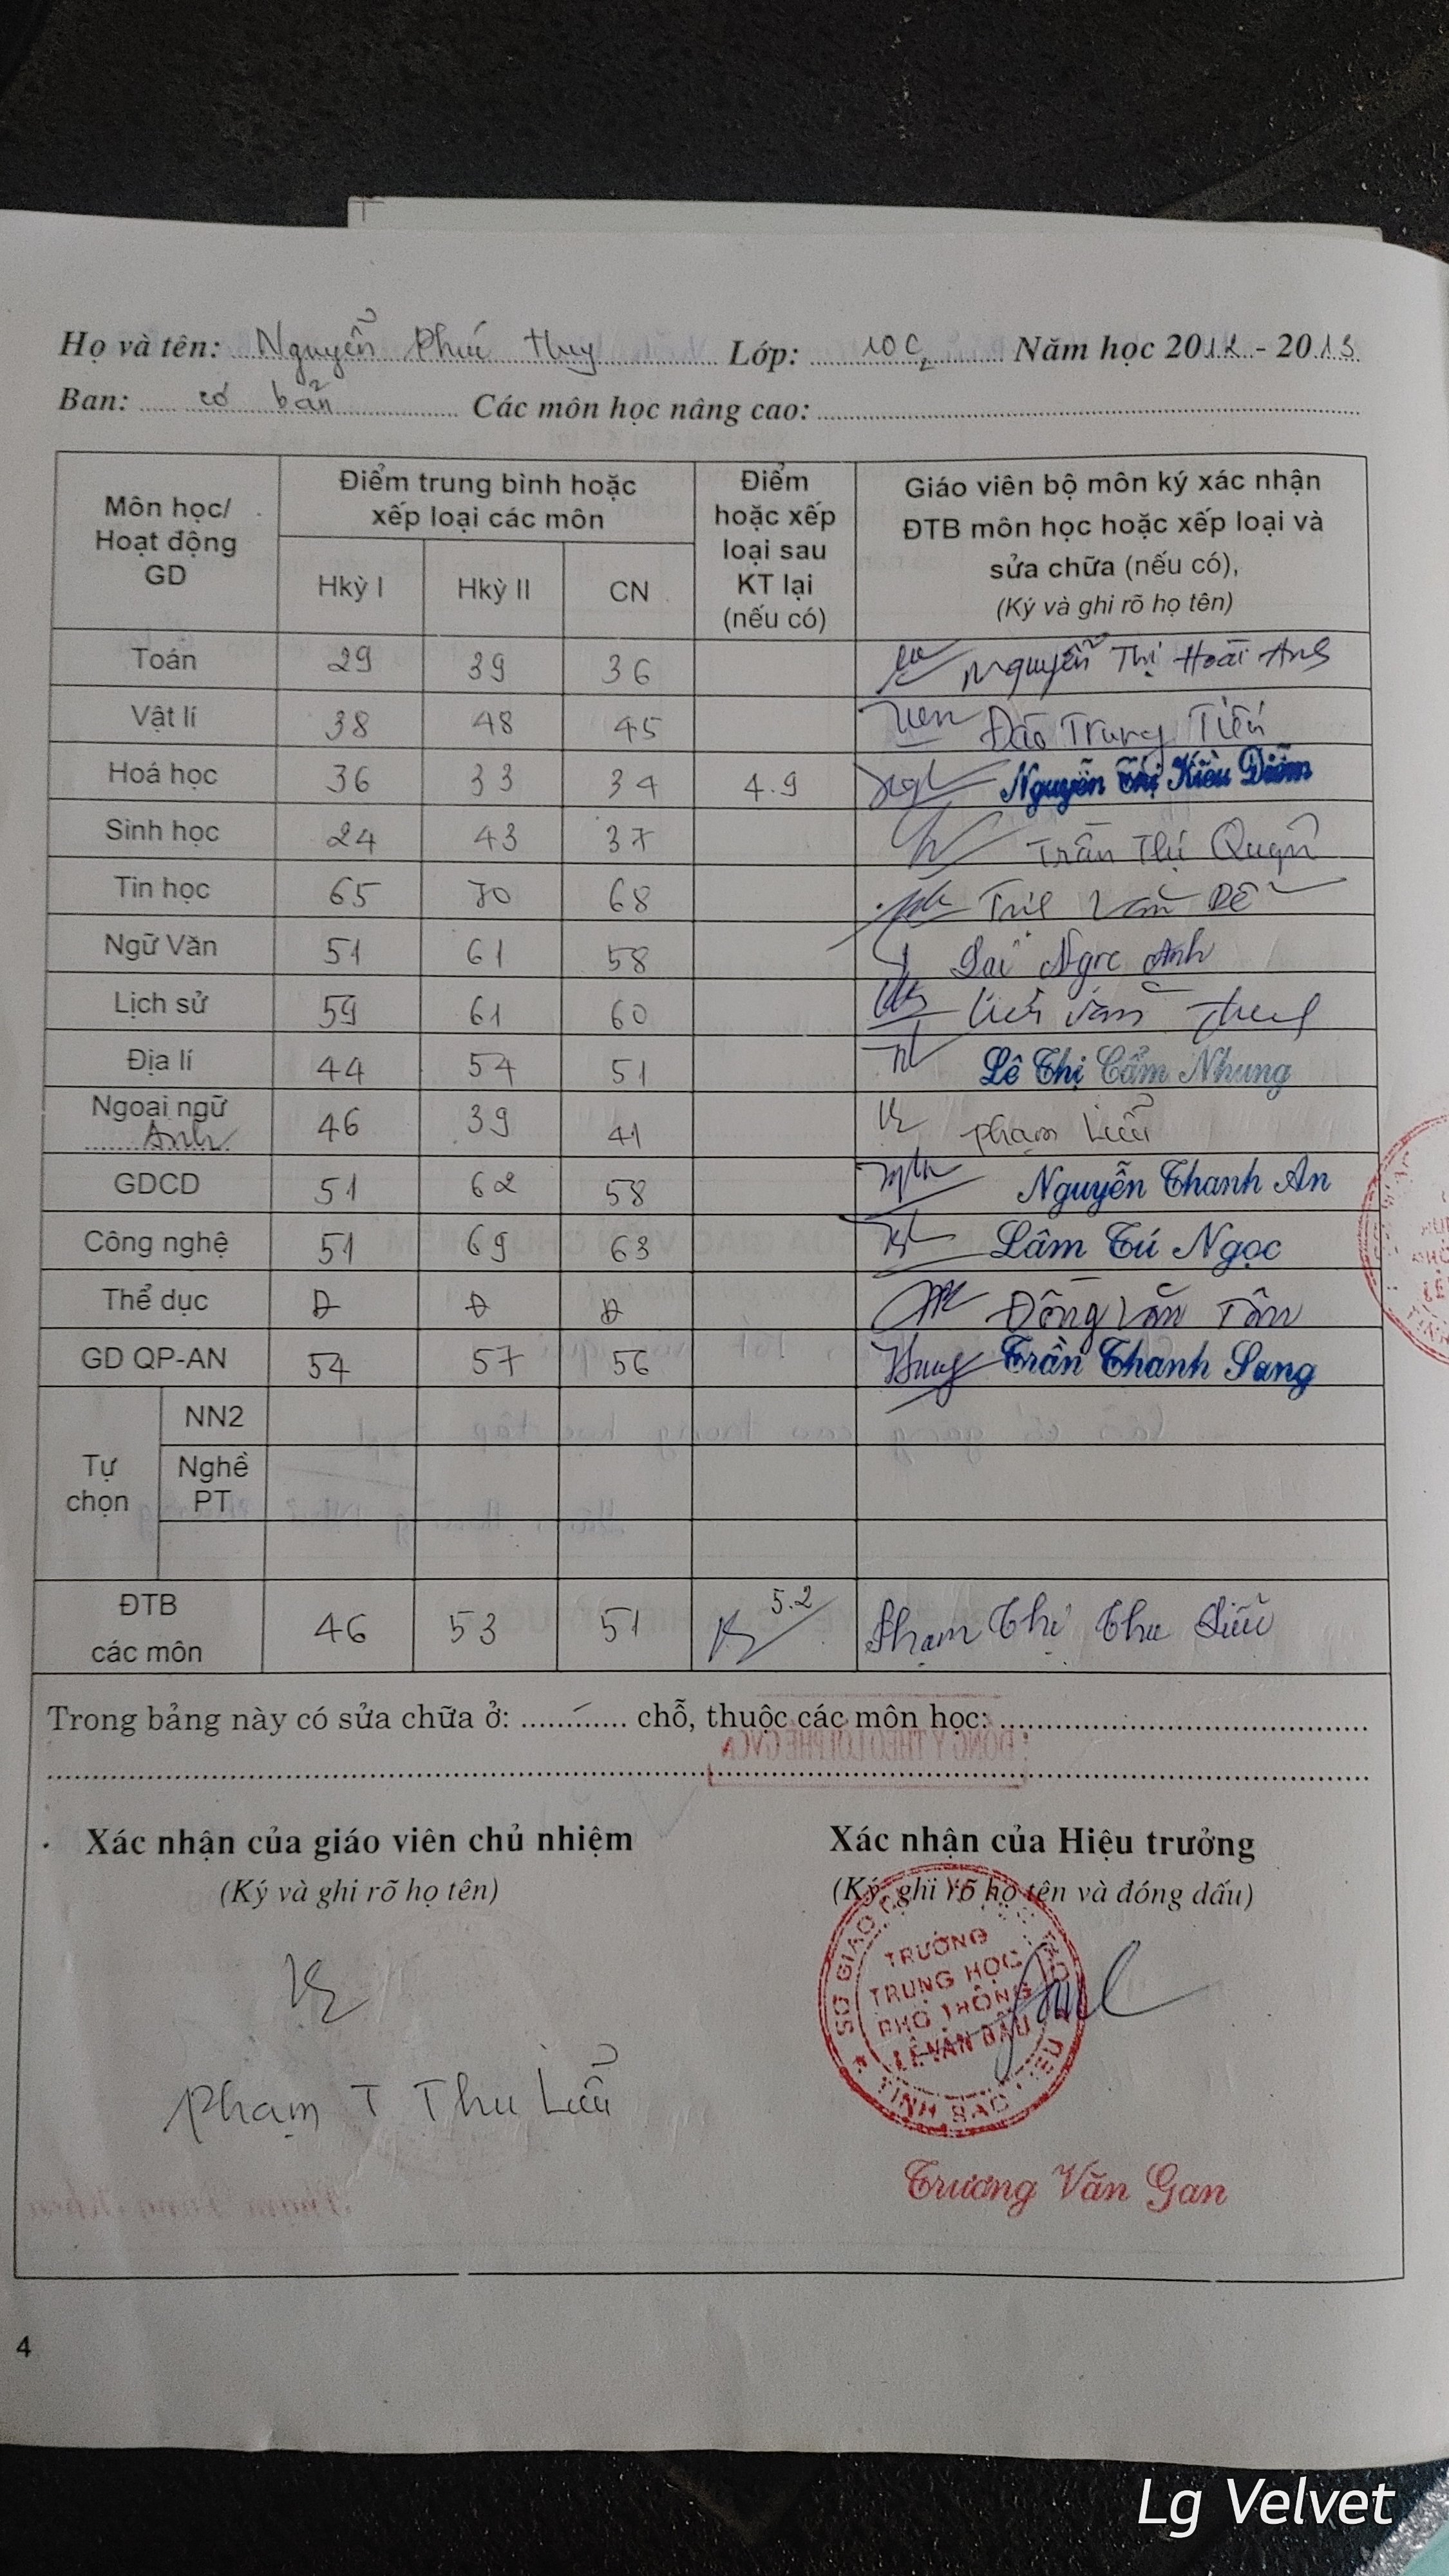 Họ và tên: Nguyễn Phúc Huy Lớp: 10C2 Năm học 2012 - 2013
Ban: cơ bản Các môn học nâng cao:
Môn học/ Hoạt động GD
Điểm trung bình hoặc xếp loại các môn
Điểm hoặc xếp loại sau KT lại (nếu có)
Giáo viên bộ môn ký xác nhận ĐTB môn học hoặc xếp loại và sửa chữa (nếu có), (Ký và ghi rõ họ tên)
Hkỳ I Hkỳ II CN
Toán 29 39 36 Nguyễn Thị Hoài Anh
Vật lí 38 48 45 Đào Trung Tiến
Hoá học 36 33 34 4.9 Nguyễn Thị Kiều Diễm
Sinh học 24 43 37 Trần Thị
Tin học 65 70 68 Văn
Ngữ Văn 51 61 58 Ngọc Anh
Lịch sử 59 61 60 Văn
Địa lí 44 54 51 Lê Thị Cẩm Nhung
Ngoại ngữ Anh 46 39 41 Phạm Liễu
GDCD 51 62 58 Nguyễn Thanh An
Công nghệ 51 69 63 Lâm Tú Ngọc
Thể dục Đ Đ Đ Đồng Văn Tâm
GD QP-AN 54 57 56 Trần Thanh Sang
Tự chọn
NN2
Nghề PT
ĐTB các môn 46 53 51 5.2 Phạm Thị Thu Liễu
Trong bảng này có sửa chữa ở: ............ chỗ, thuộc các môn học:
Xác nhận của giáo viên chủ nhiệm Xác nhận của Hiệu trưởng
(Ký và ghi rõ họ tên) (Ký, ghi rõ họ tên và đóng dấu)
TRƯỜNG
TRUNG HỌC
PHỔ THÔNG
LÊ VĂN ĐẨU
Phạm T Thu Liễu
Trương Văn Gan
4
Lg Velvet